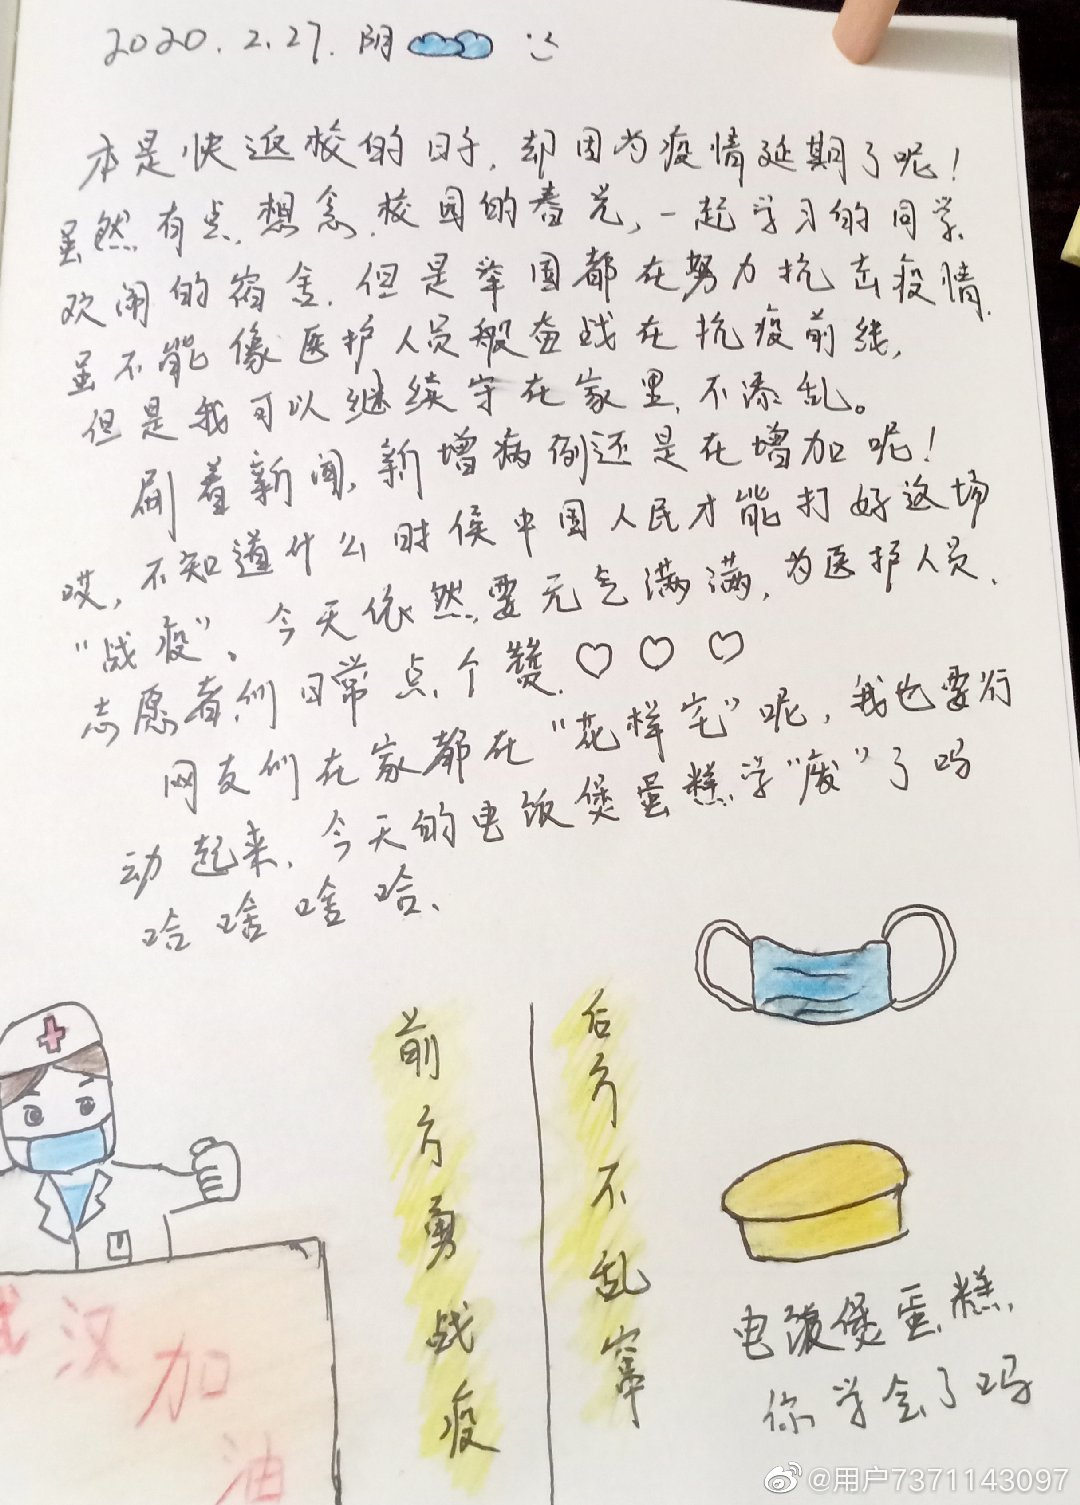 2020.2.27. 阴
本是快返校的日子,却因为疫情延期了呢!
虽然有点想念校园的春光,一起学习的同学、
欢闹的宿舍.但是举国都在努力抗击疫情.
虽不能像医护人员般奋战在抗疫前线,
但是我可以继续守在家里、不添乱。
刷着新闻,新增病例还是在增加呢!
哎,不知道什么时候中国人民才能打好这场
“战疫”。今天依然要元气满满,为医护人员、
志愿者们日常点个赞.♡♡♡
网友们在家都在“花样宅”呢,我也要行
动起来.今天的电饭煲蛋糕学“废”了吗
哈啥啥哈.
前方勇战疫
后方不乱窜
武汉加油
电饭煲蛋糕
你学会了吗
@用户7371143097